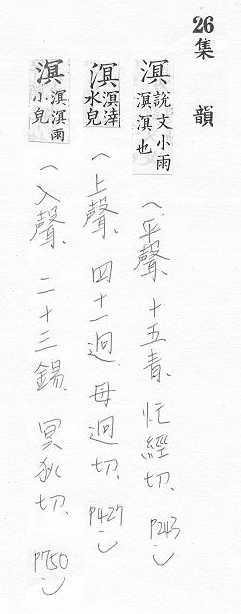 26集韻
溟說文小雨溟溟也（平聲、十五青、忙經切、P243）
溟溟涬水皃（上聲、四十一迥、母迥切、P427）
溟溟溟雨小皃（入聲、二十三錫、冥狄切、P750）